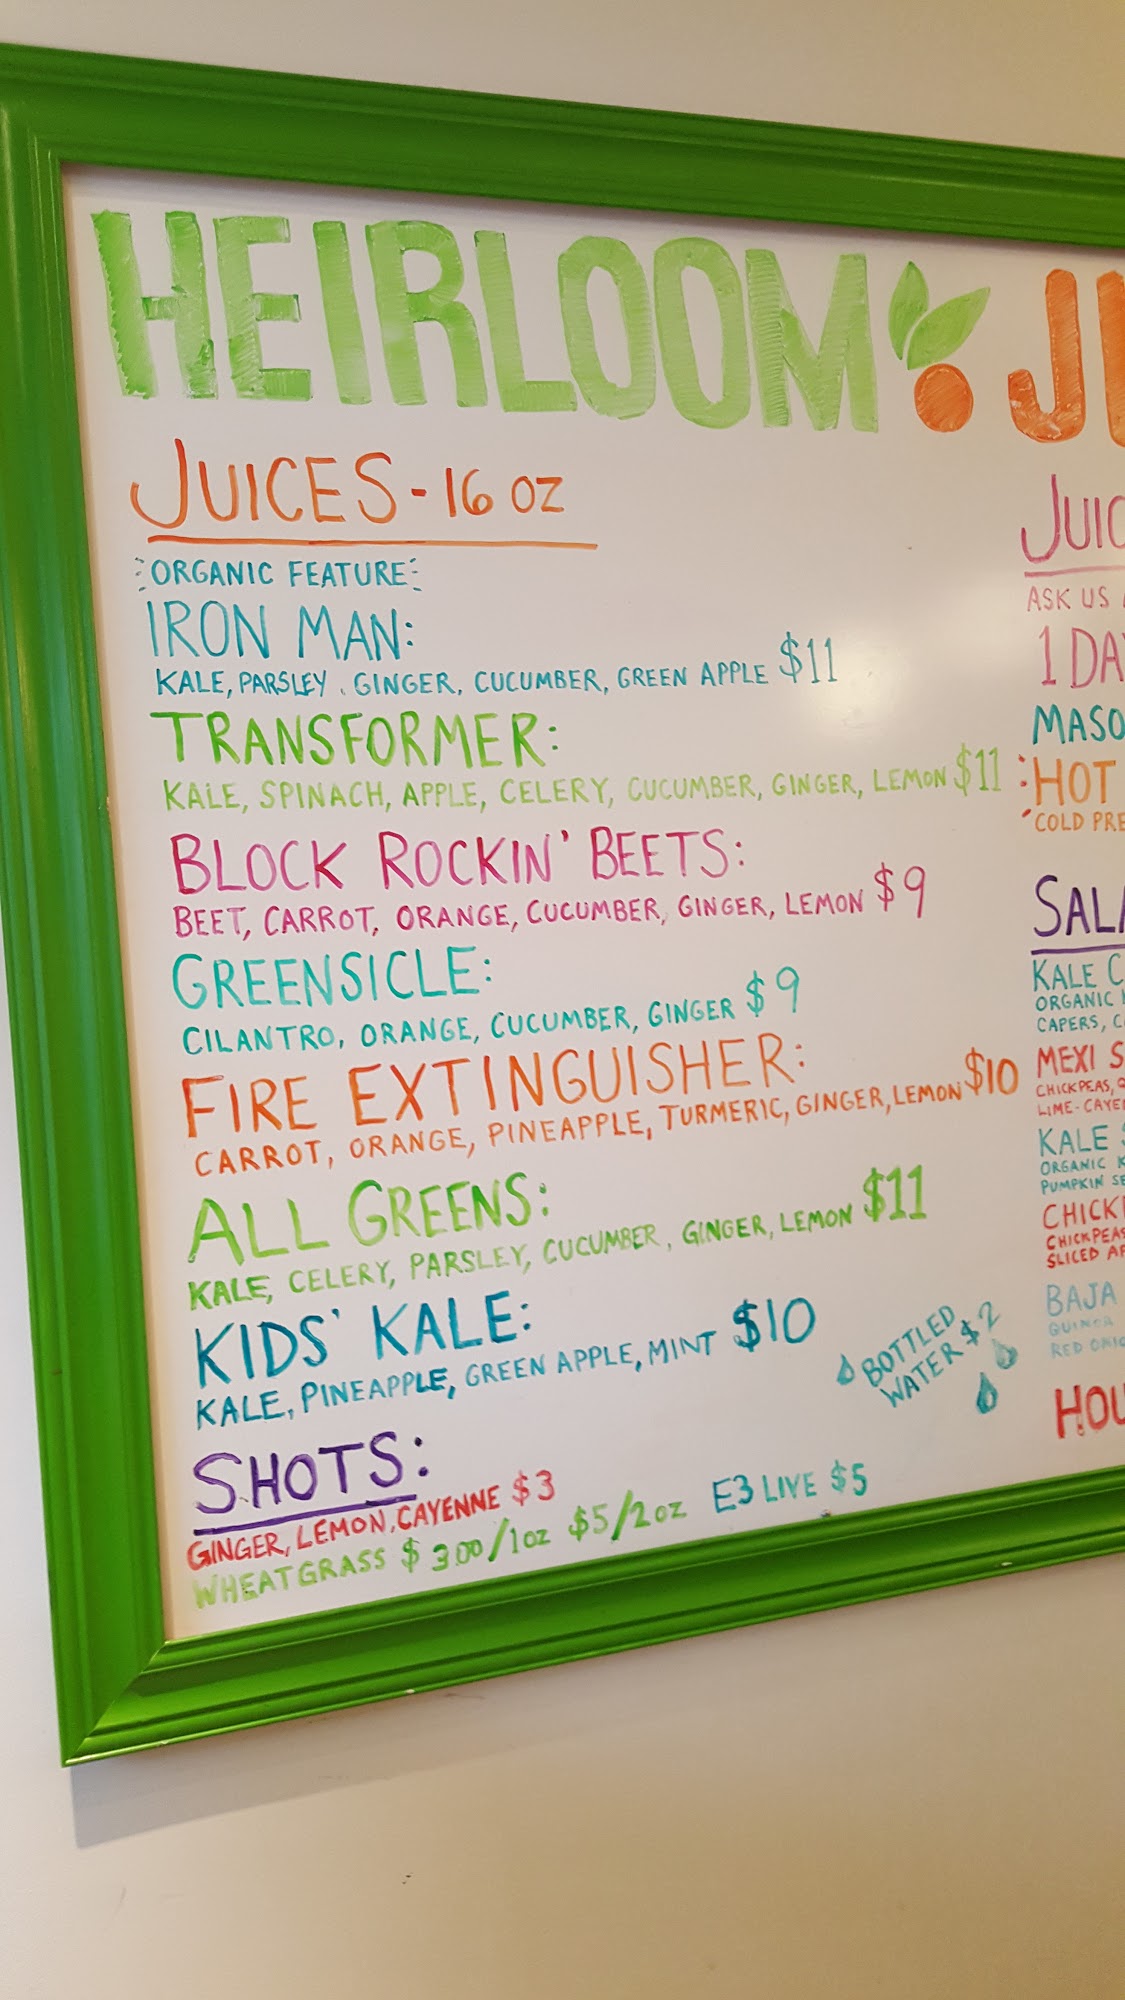 HEIRLOOM
JUICES - 16 OZ
ORGANIC FEATURE
IRON MAN:
KALE, PARSLEY, GINGER, CUCUMBER, GREEN APPLE $11
TRANSFORMER:
KALE, SPINACH, APPLE, CELERY, CUCUMBER, GINGER, LEMON $11
BLOCK ROCKIN' BEETS:
BEET, CARROT, ORANGE, CUCUMBER, GINGER, LEMON $9
GREENSICLE:
CILANTRO, ORANGE, CUCUMBER, GINGER $9
FIRE EXTINGUISHER:
CARROT, ORANGE, PINEAPPLE, TURMERIC, GINGER, LEMON $10
ALL GREENS:
KALE, CELERY, PARSLEY, CUCUMBER, GINGER, LEMON $11
KIDS' KALE:
KALE, PINEAPPLE, GREEN APPLE, MINT $10
BOTTLED
WATER $2
SHOTS:
GINGER, LEMON, CAYENNE $3
WHEATGRASS $3.00/1oz $5/2oz
E3 LIVE $5
ASK US
1
HOT
COLD
KALE
ORGANIC
CAPERS,
MEXI
CHICKPEAS,
KALE
ORGANIC
PUMPKIN
SLICED
BAJA
QUINOA
RED